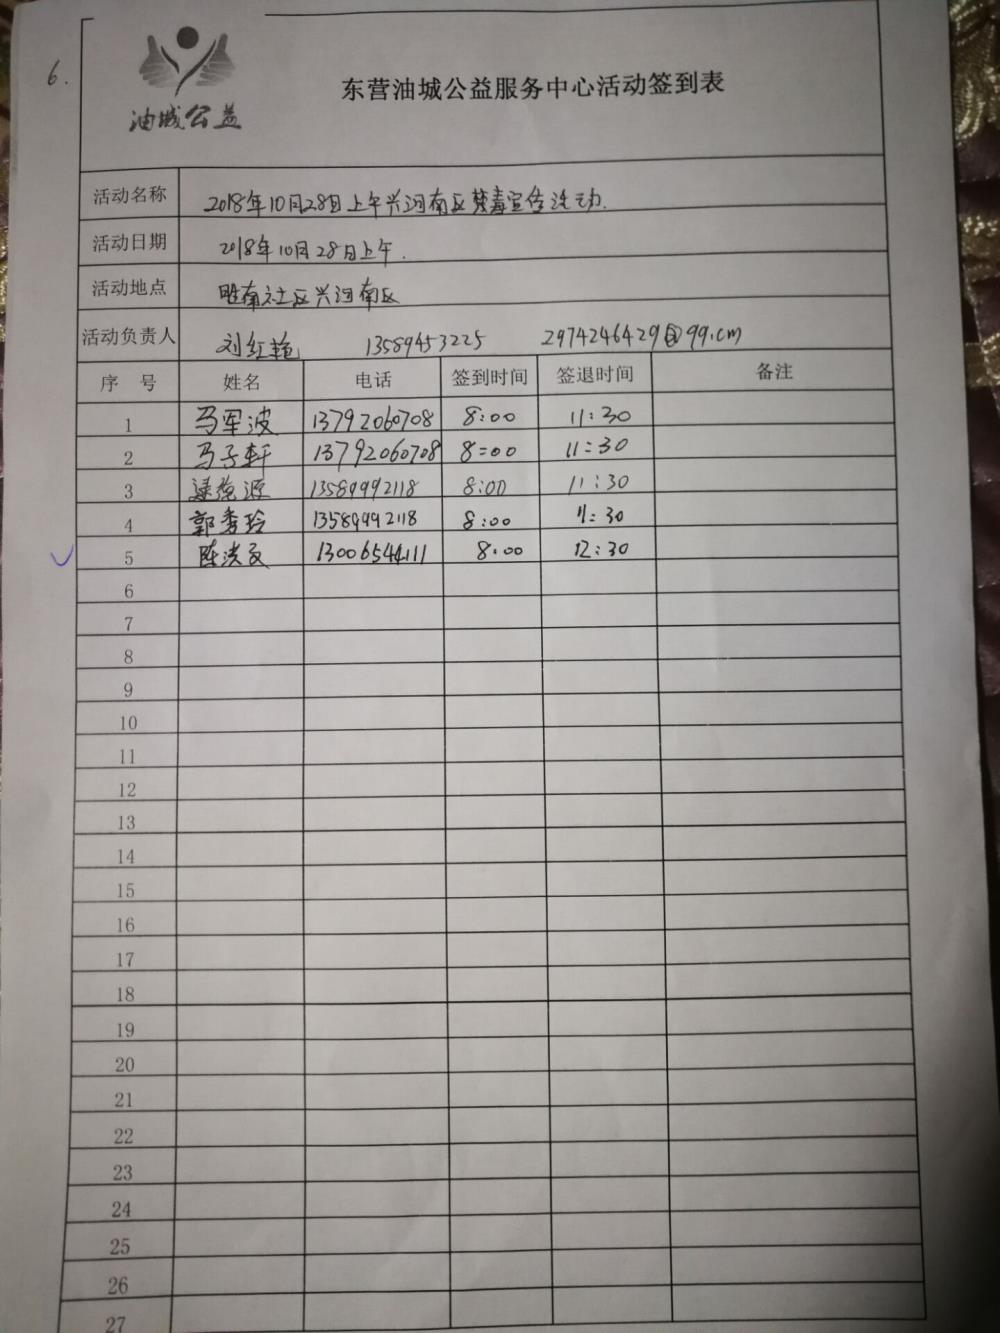 6.
油城公益
东营油城公益服务中心活动签到表
活动名称 2018年10月28日上午兴河南区禁毒宣传活动.
活动日期 2018年10月28日上午.
活动地点 胜南社区兴河南区
活动负责人 刘红艳 13589453225 2974246429@qq.cm
序 号 姓名 电话 签到时间 签退时间 备注
1 马军波 13792060708 8:00 11:30
2 马子轩 13792060708 8:00 11:30
3 源 13589992118 8:00 11:30
4 郭秀玲 13589992118 8:00 11:30
5 陈洪 13006544111 8:00 12:30
6
7
8
9
10
11
12
13
14
15
16
17
18
19
20
21
22
23
24
25
26
27